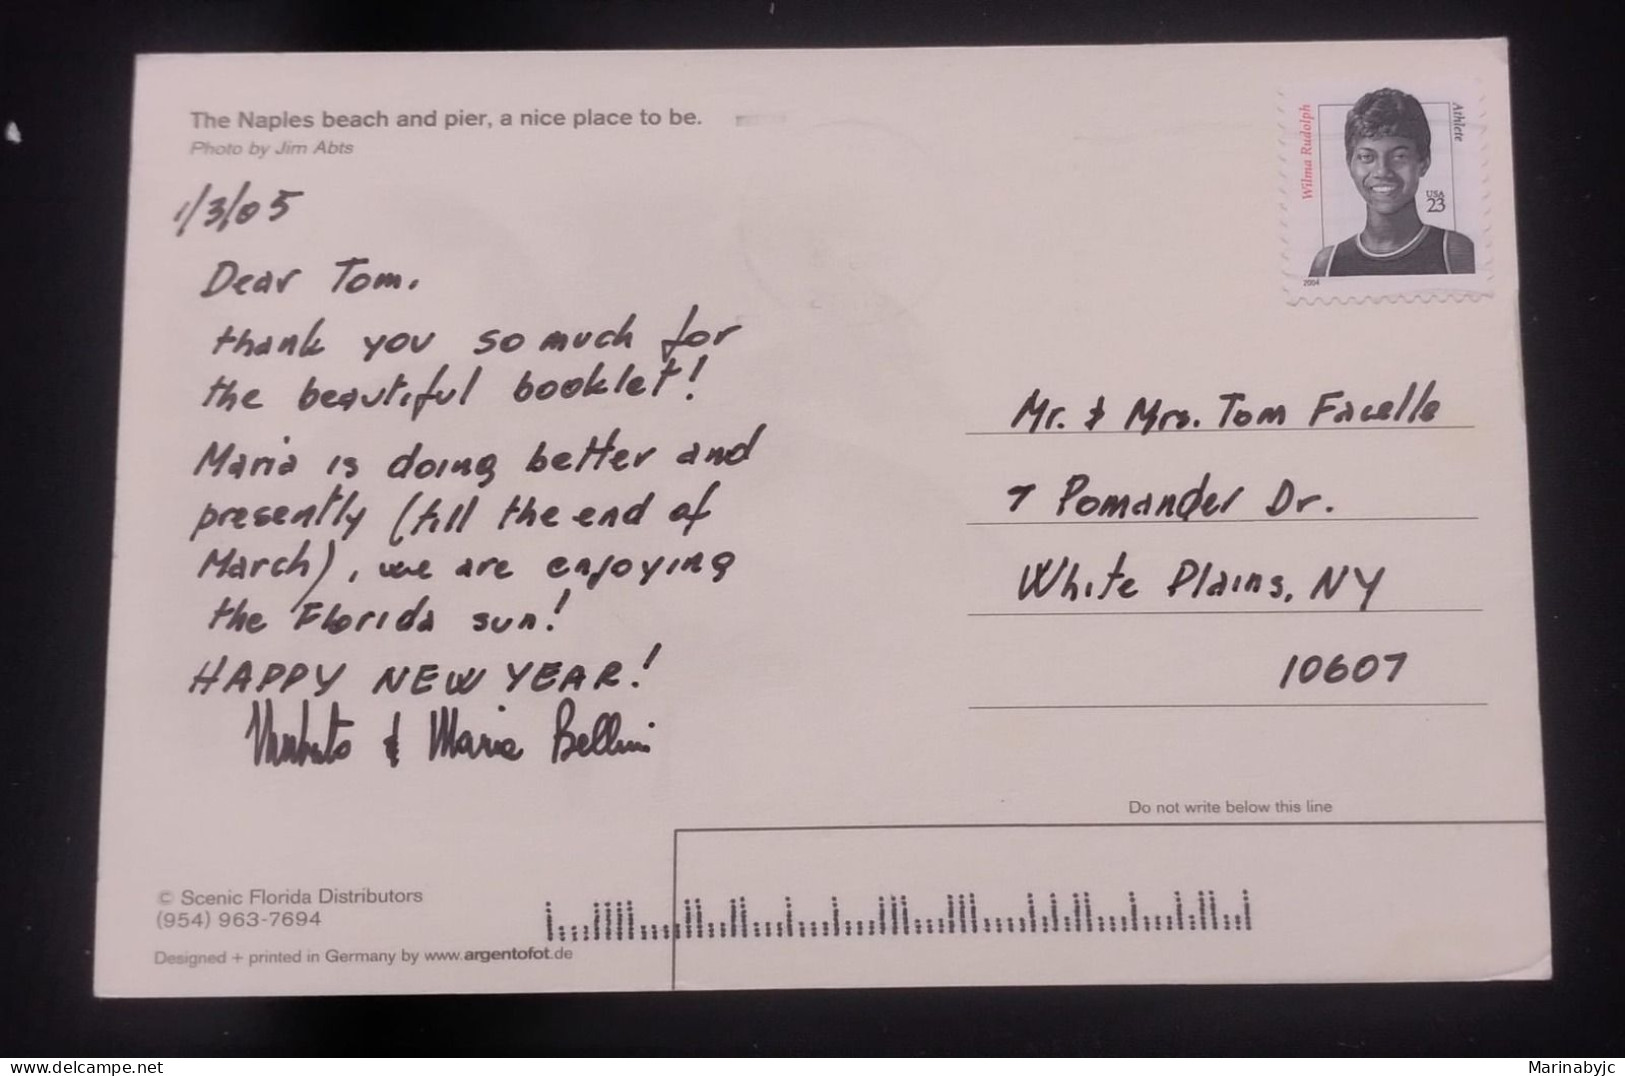 The Naples beach and pier, a nice place to be.
Photo by Jim Abts
1/3/05
Dear Tom,
thank you so much for
the beautiful booklet!
Maria is doing better and
presently (till the end of
March), we are enjoying
the Florida sun!
HAPPY NEW YEAR!
& Maria Bellini
Wilma Rudolph
Athlete
USA
23
2004
Mr. & Mrs. Tom Facelle
7 Pomander Dr.
White Plains, NY
10607
Do not write below this line
© Scenic Florida Distributors
(954) 963-7694
Designed + printed in Germany by www.argentofot.de
delcampe.net
Marinabyjc